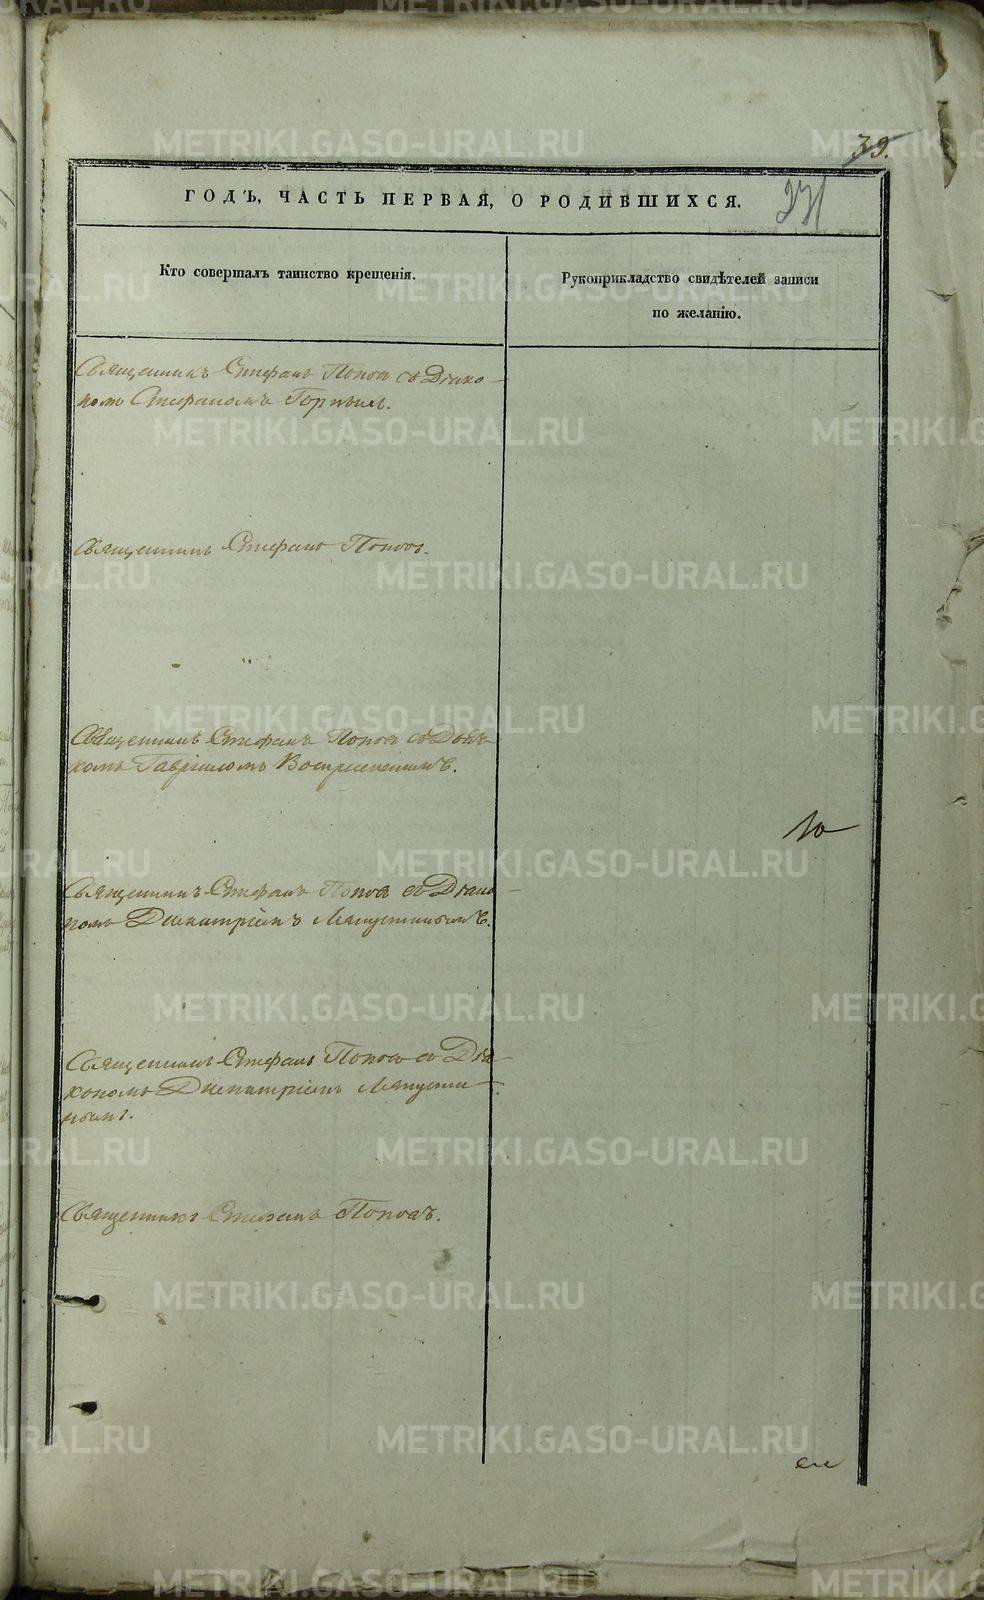 39.
ГОДЪ, ЧАСТЬ ПЕРВАЯ, О РОДИВШИХСЯ.
Кто совершалъ таинство крещенія.
Рукоприкладство свидѣтелей записи
по желанію.
Священникъ Стефанъ Поповъ съ Діако-
номъ Стефаномъ
Священникъ Стефанъ Поповъ.
Священникъ Стефанъ Поповъ съ Дья-
комъ Гавріиломъ Воскресенскимъ.
Священникъ Стефанъ Поповъ съ Діако-
номъ Димитріемъ Ляпустинымъ.
Священникъ Стефанъ Поповъ съ Діа-
кономъ Димитріемъ Ляпусти-
нымъ.
Священникъ Стефанъ Поповъ.
METRIKI.GASO-URAL.RU